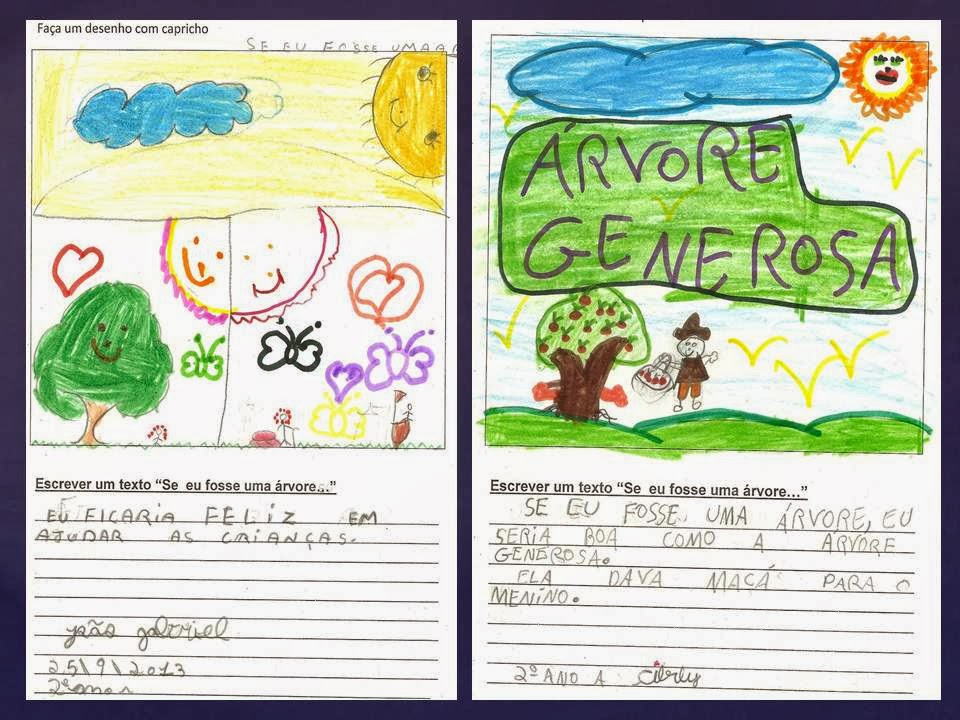 Faça um desenho com capricho
SE EU FOSSE UMA
Escrever um texto “Se eu fosse uma árvore...”
EU FICARIA FELIZ EM
AJUDAR AS CRIANÇAS.
joão gabriel
25/9/2013
2º ano
ÁRVORE
GENEROSA
Escrever um texto “Se eu fosse uma árvore...”
SE EU FOSSE UMA ÁRVORE, EU
SERIA BOA COMO A ÁRVORE
GENEROSA.
ELA DAVA MAÇÁ PARA O
MENINO.
2º ANO A